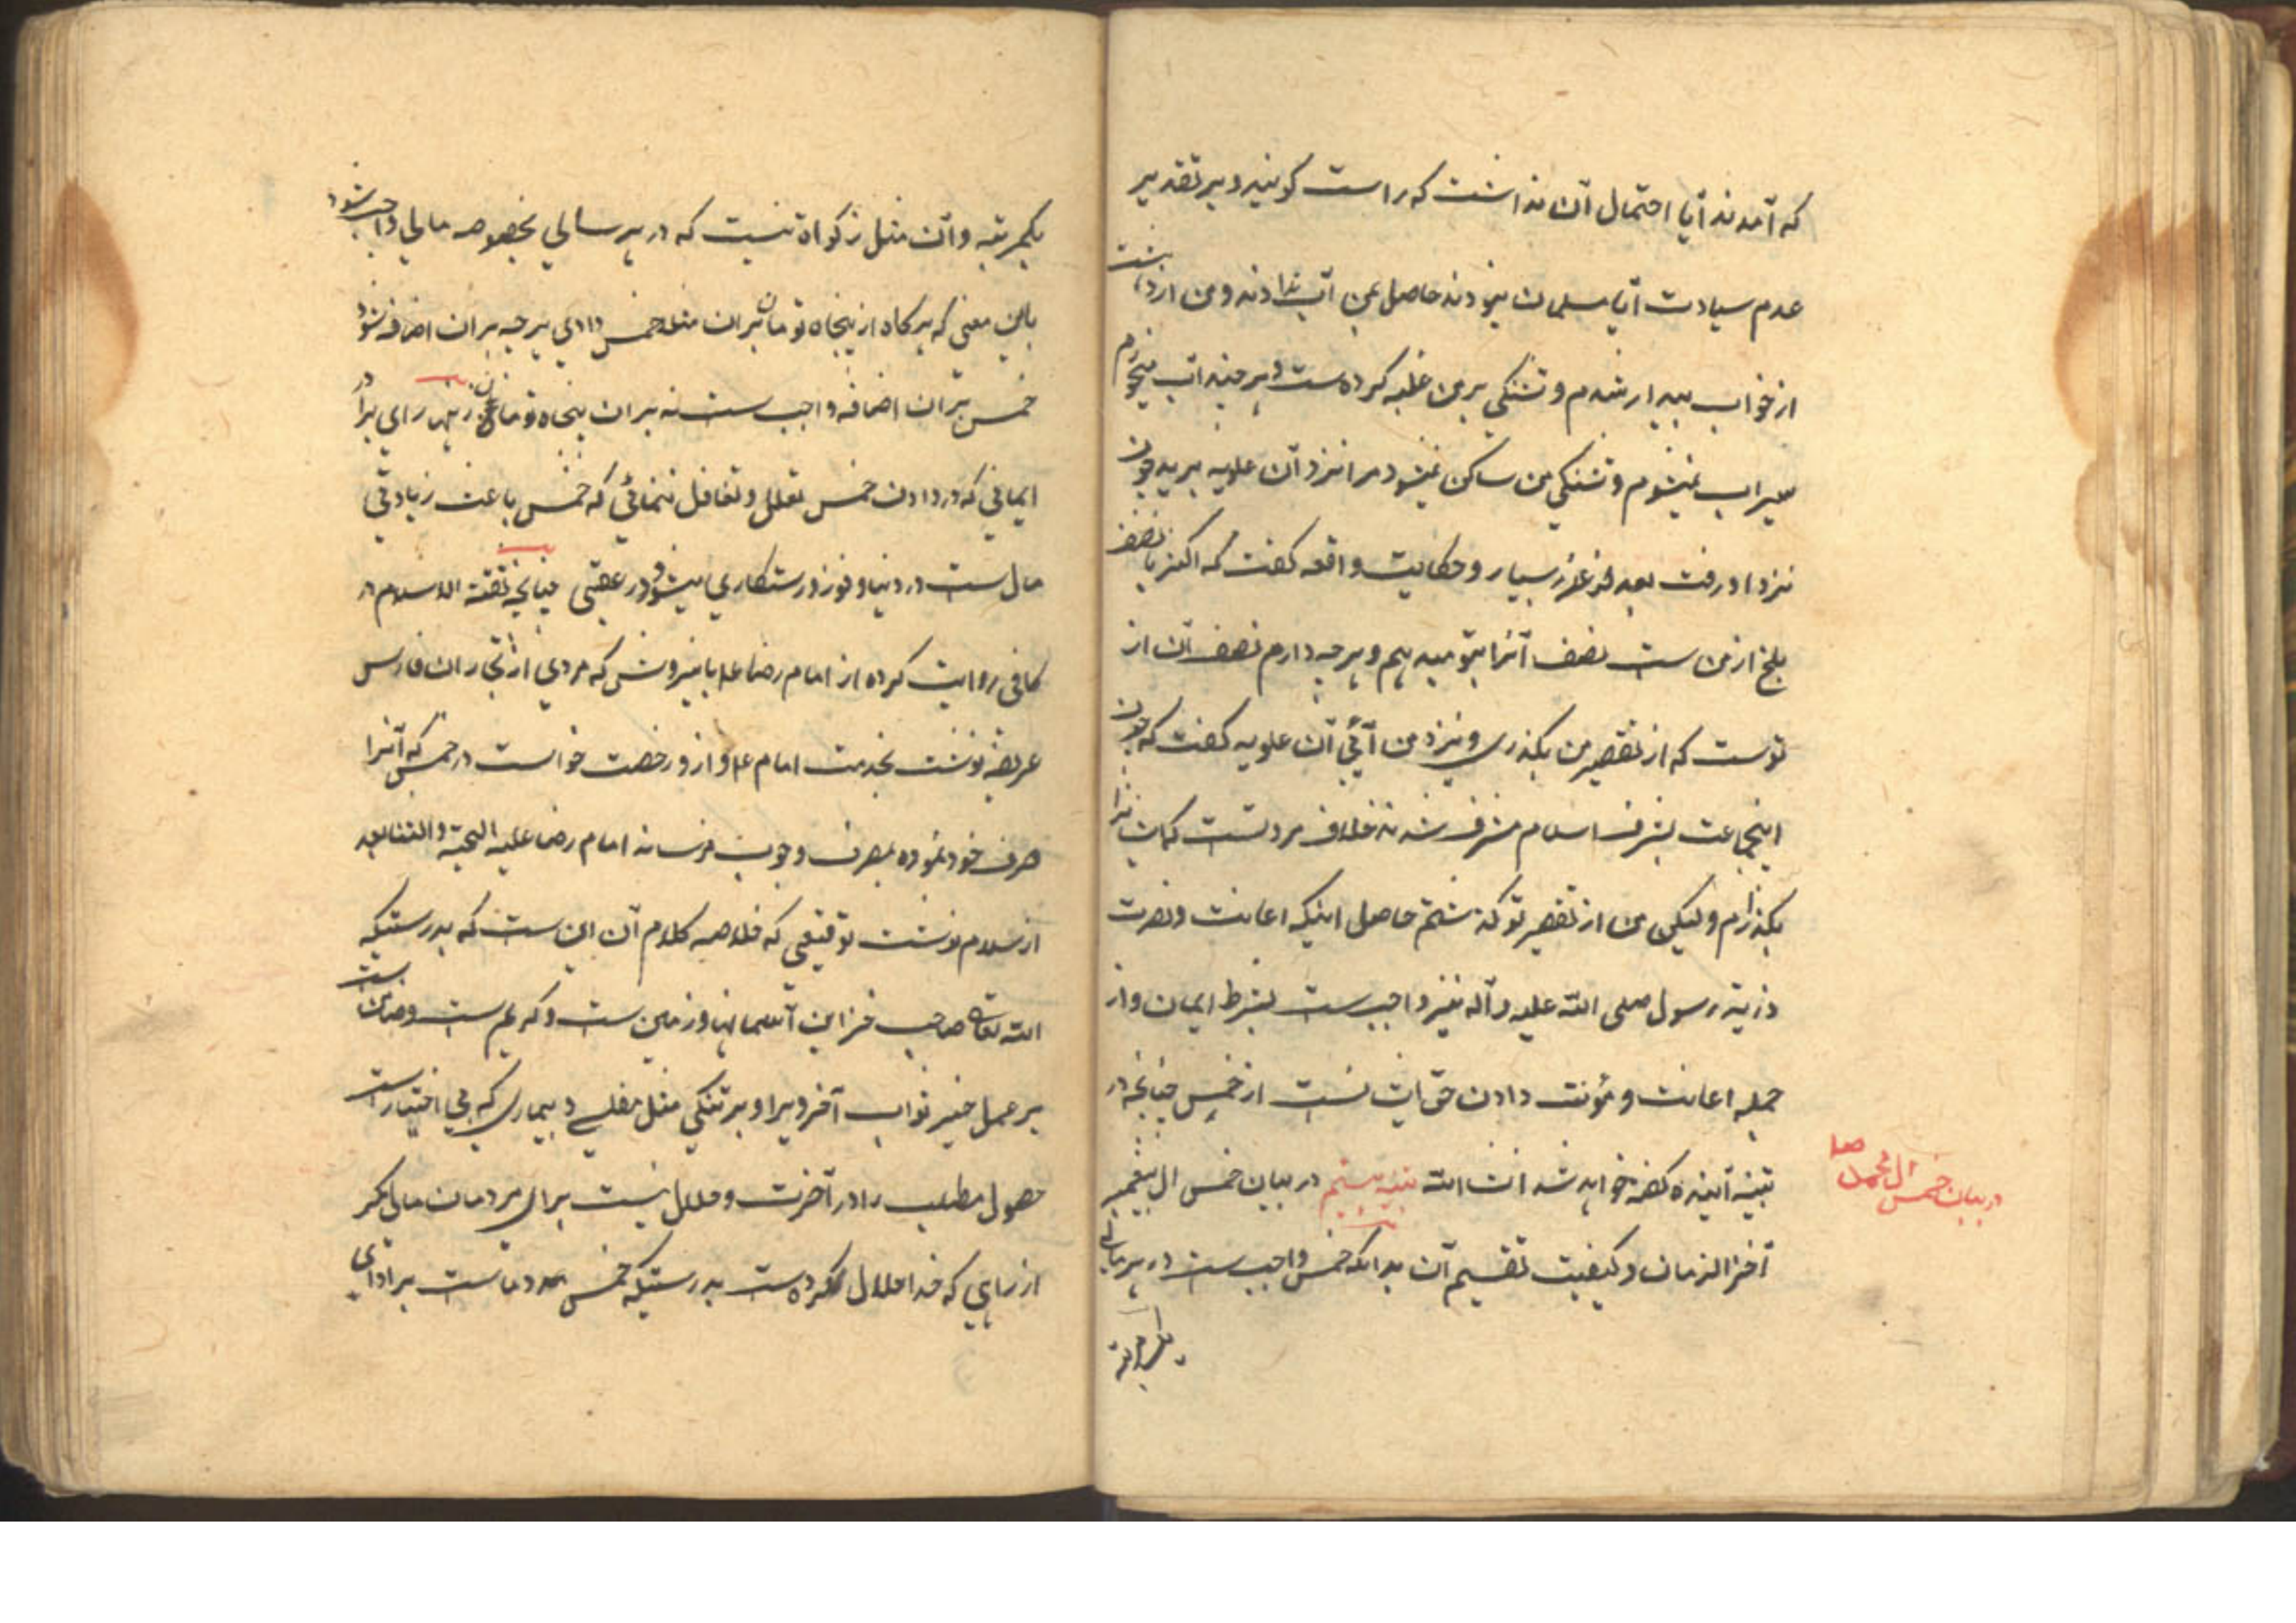 که آمدند آیا احتمال آن نداشت که راست کویند و بر تقدیر
عدم سیادت آیا مسلمان نبودند حاصل بمن آب ندادند و من از دهشت
از خواب بیدار شدم و تشنکی بر من غلبه کرده است و هر چند آب میخورم
سیراب نمیشوم و تشنکی من ساکن نمیشود مرا نزد آن علویه برید چون
نزد او رفت بعد عذر بسیار و حکایت واقعه کفت که اکنون نصف
بلخ از من ست نصف آنرا بتو میدهم و هر چه دارم نصف آن از
توست که از تقصیر من بکذری و نزد من آئی آن علویه کفت که چون
اینجماعت بشرف اسلام مشرف شدند خلاف مروتست که ایشانرا
بکذارم ولیکن من از تقصیر تو کذشتم حاصل اینکه اعانت و نصرت
ذریة رسول صلی الله علیه و آله نیز واجب ست بشرط ایمان و از
جمله اعانت و مؤنت دادن حق ایشانست از خمس چنانچه در
تنبیه آینده کفته خواهد شد انشاء الله تنبیه بیستم در بیان خمس ال پیغمبر
در بیان خمس ال محمد صلعم
آخر الزمان و کیفیت تقسیم آن بدانکه خمس واجب ست در هر مالی
یکمرتبه
یکمرتبه و آن مثل زکواة نیست که در هر سالی بخصوصه مالی واجب شود
باین معنی که هر کاه از پنجاه تومان بر آن مثلا خمس دادی هر چه بر ان اضافه شود
خمس بر ان اضافه واجب ست نه بر ان پنجاه تومان زنهار ای برادر
ایمانی که در دادن خمس تعلل و تغافل ننمائی که خمس باعث زیادتی
مال ست در دنیا و فوز و رستکاری میشود در عقبی چنانچه ثقة الاسلام در
کافی روایت کرده از امام رضا ع باینروش که مردی از تجاران فارس
عریضه نوشت بخدمت امام ع و از و رخصت خواست در خمس که آنرا
صرف خود نموده بمصرف وجوب نرساند امام رضا علیه التحیة و الثنا بعد
از سلام نوشت توقیعی که خلاصه کلام آن این ست که بدرستیکه
الله تعالی صاحب خزاین آسمانها و زمین ست و کریم ست و ضامن ست
بر عمل خیر ثواب آخرویرا و بر تنکی مثل مفلسی و بیماری که بی اختیار است
حصول مطلب را در آخرت و حلال نیست برای مردمان مالی مکر
از راهی که خدا حلال کرده ست بدرستیکه خمس مدد ماست بر ادای